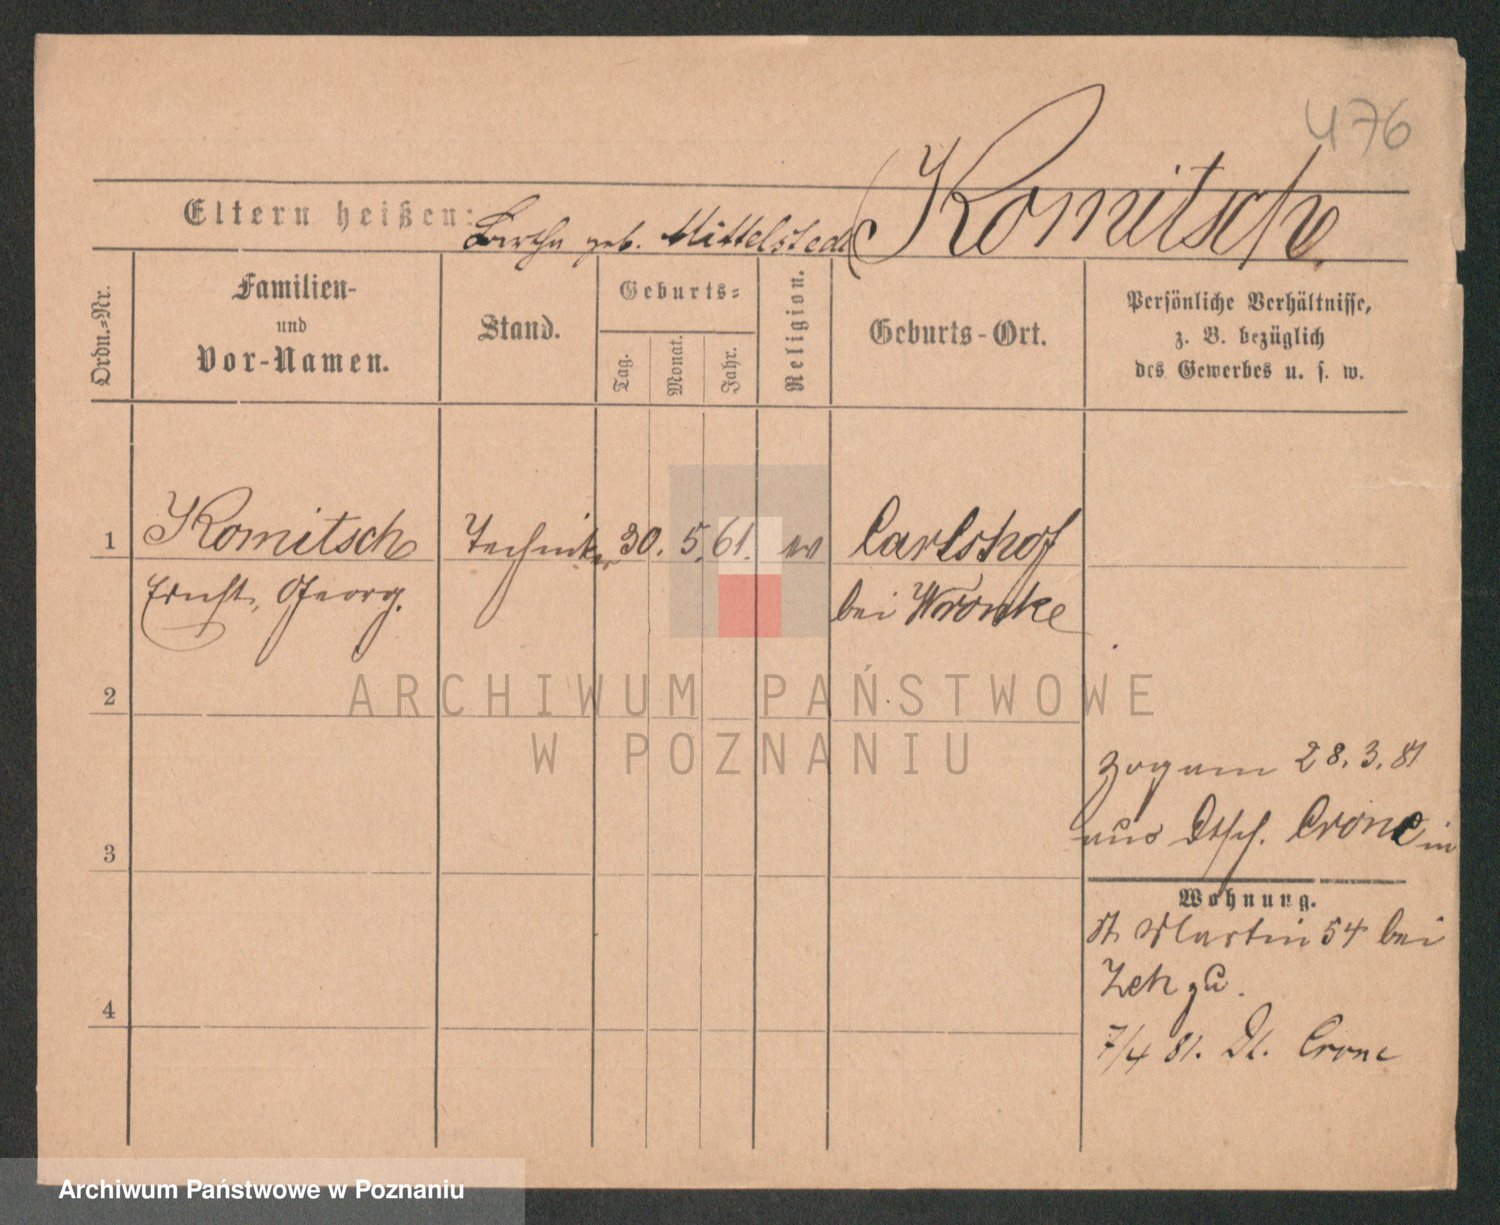 476
Komitsch
Eltern heißen: Bertha geb. Mittelstedt
Ordn.=Nr.
Familien-
und
Vor-Namen.
Stand.
Geburts=
Tag.
Monat.
Jahr.
Religion.
Geburts-Ort.
Persönliche Verhältnisse,
z. B. bezüglich
des Gewerbes u. s. w.
1 Komitsch Techniker 30. 5. 61. ev Carlshof
Ernst, Georg. bei Wronke
2
ARCHIWUM PAŃSTWOWE
W POZNANIU
zog am 28. 3. 81
aus Dtsch. Crone in
3
Wohnung.
St Martin 54 bei
4
7/4 81. Dt. Crone
Archiwum Państwowe w Poznaniu